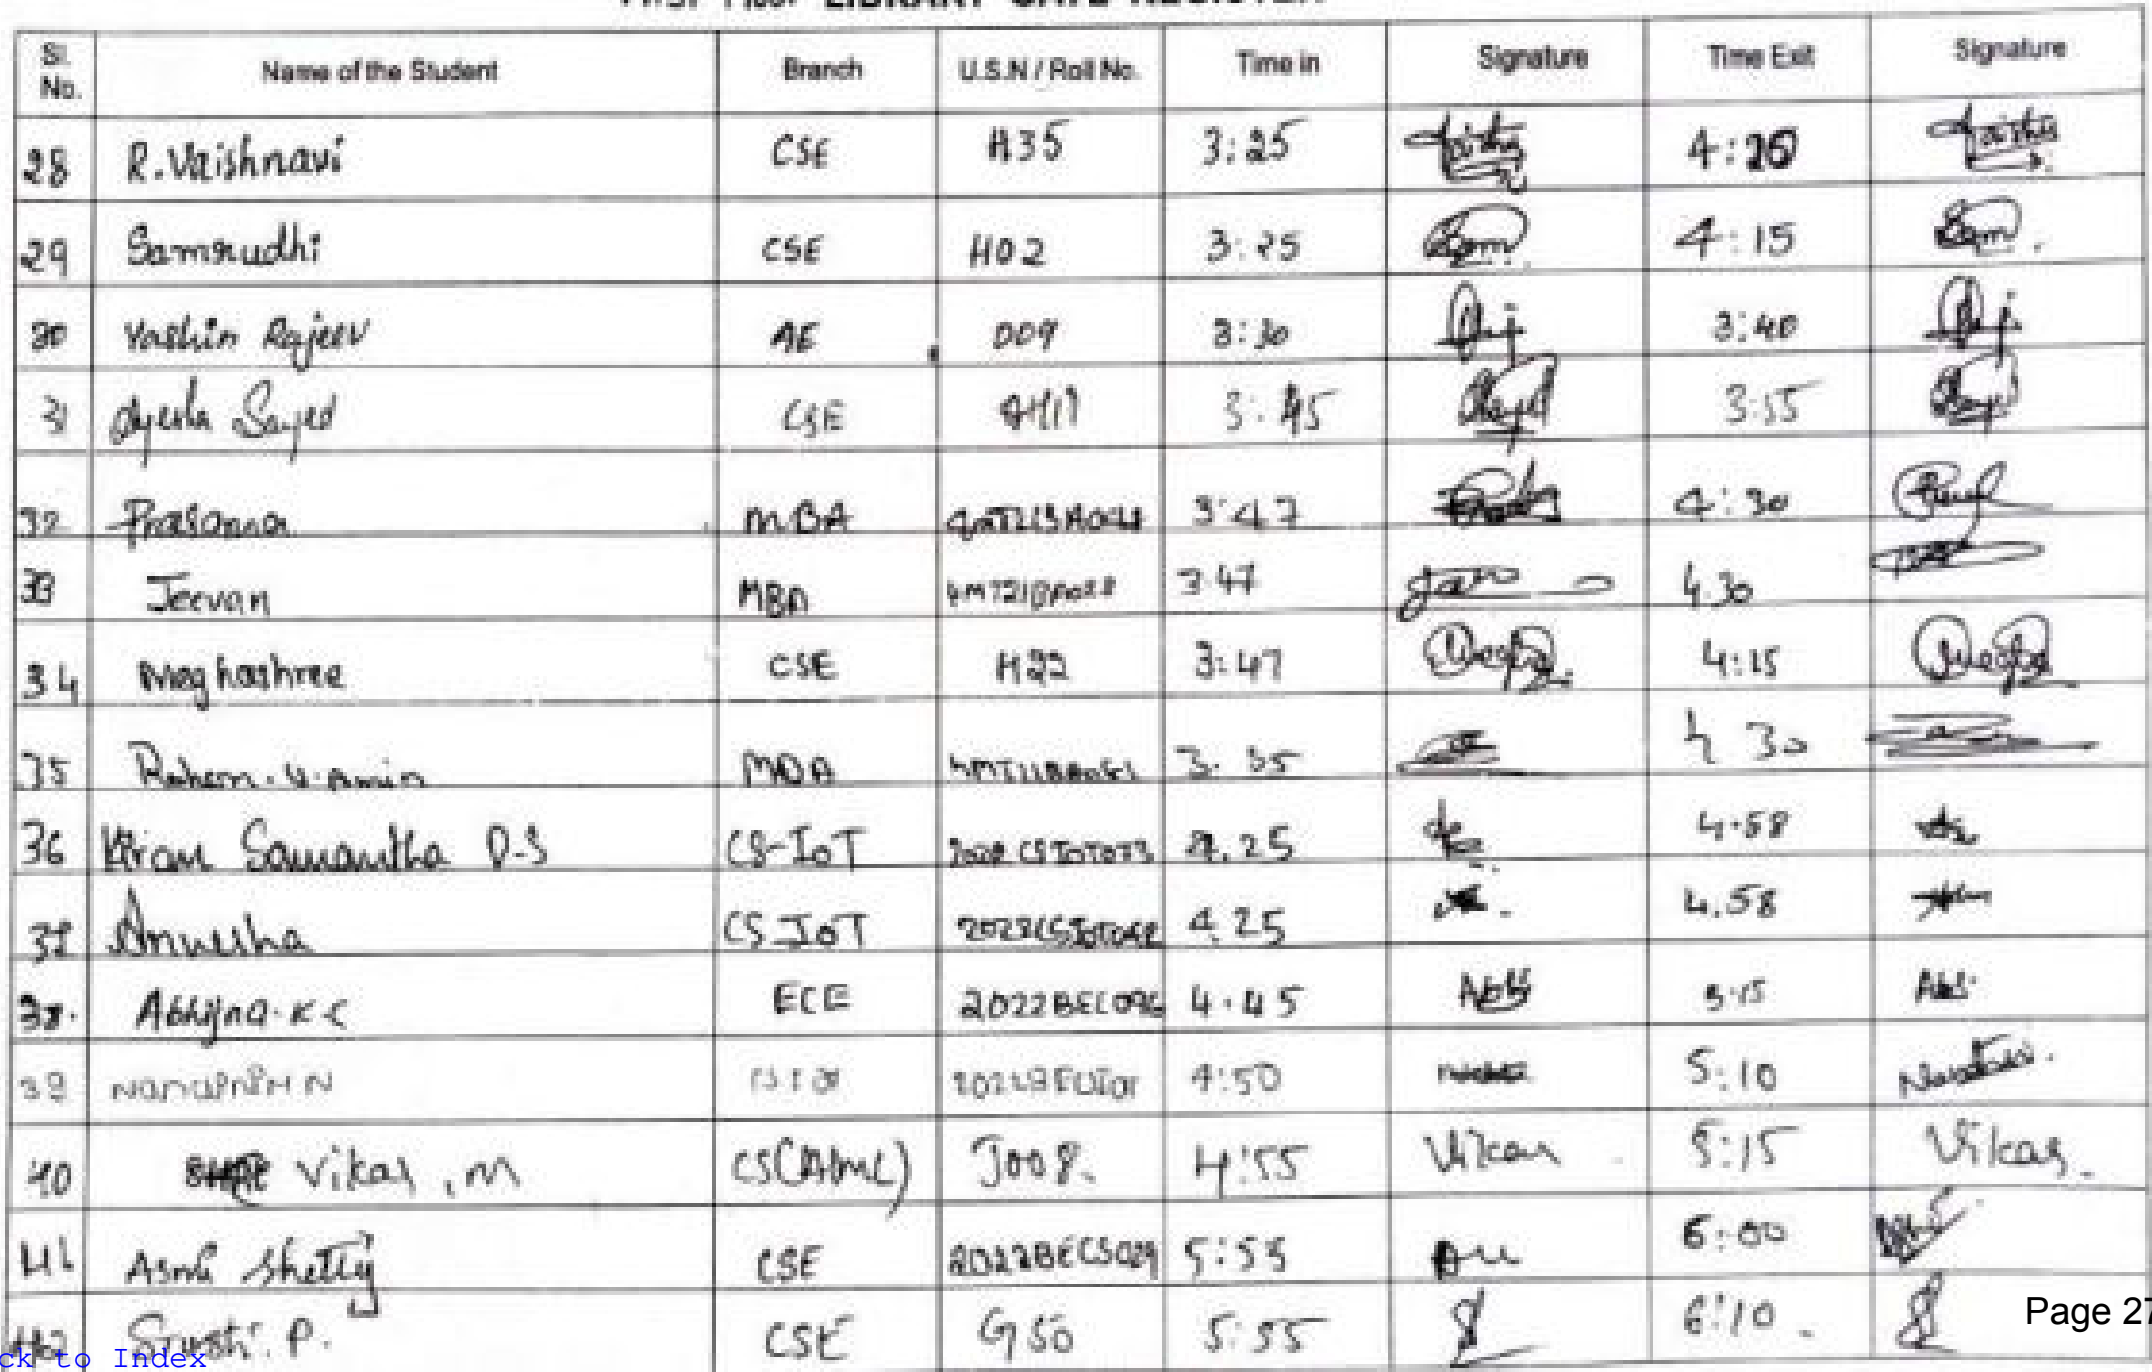 First Floor LIBRARY GATE REGISTER
Sl. No. Name of the Student Branch U.S.N / Roll No. Time in Signature Time Exit Signature
28 R.Vaishnavi CSE H35 3:25 4:20
29 Samrudhi CSE H02 3:25 4:15
30 Yashin Rajeev AE 009 3:30 3:40
31 Ayesha Sayed CSE 3:45 3:55
32 Prasanna MBA 3:47 4:30
33 Jeevan MBA 3:47 4.30
34 Meghashree CSE H22 3:47 4:15
35 MBA 3. 35 4 30
36 Kiran Samantha D.S CS-IoT 4.25 4.58
37 Anusha CS-IoT 4.25 4.58
38. Abhijna.K C ECE 4.45 5.15
39 4:50 5:10
40 Vikas .M CS(AIML) J008. 4:55 Vikas 5:15 Vikas
41 Shetty CSE 2022BECS029 5:55 6:00
42 Srusti.P. CSE G50 5:55 6:10
Page 27
ck to Index